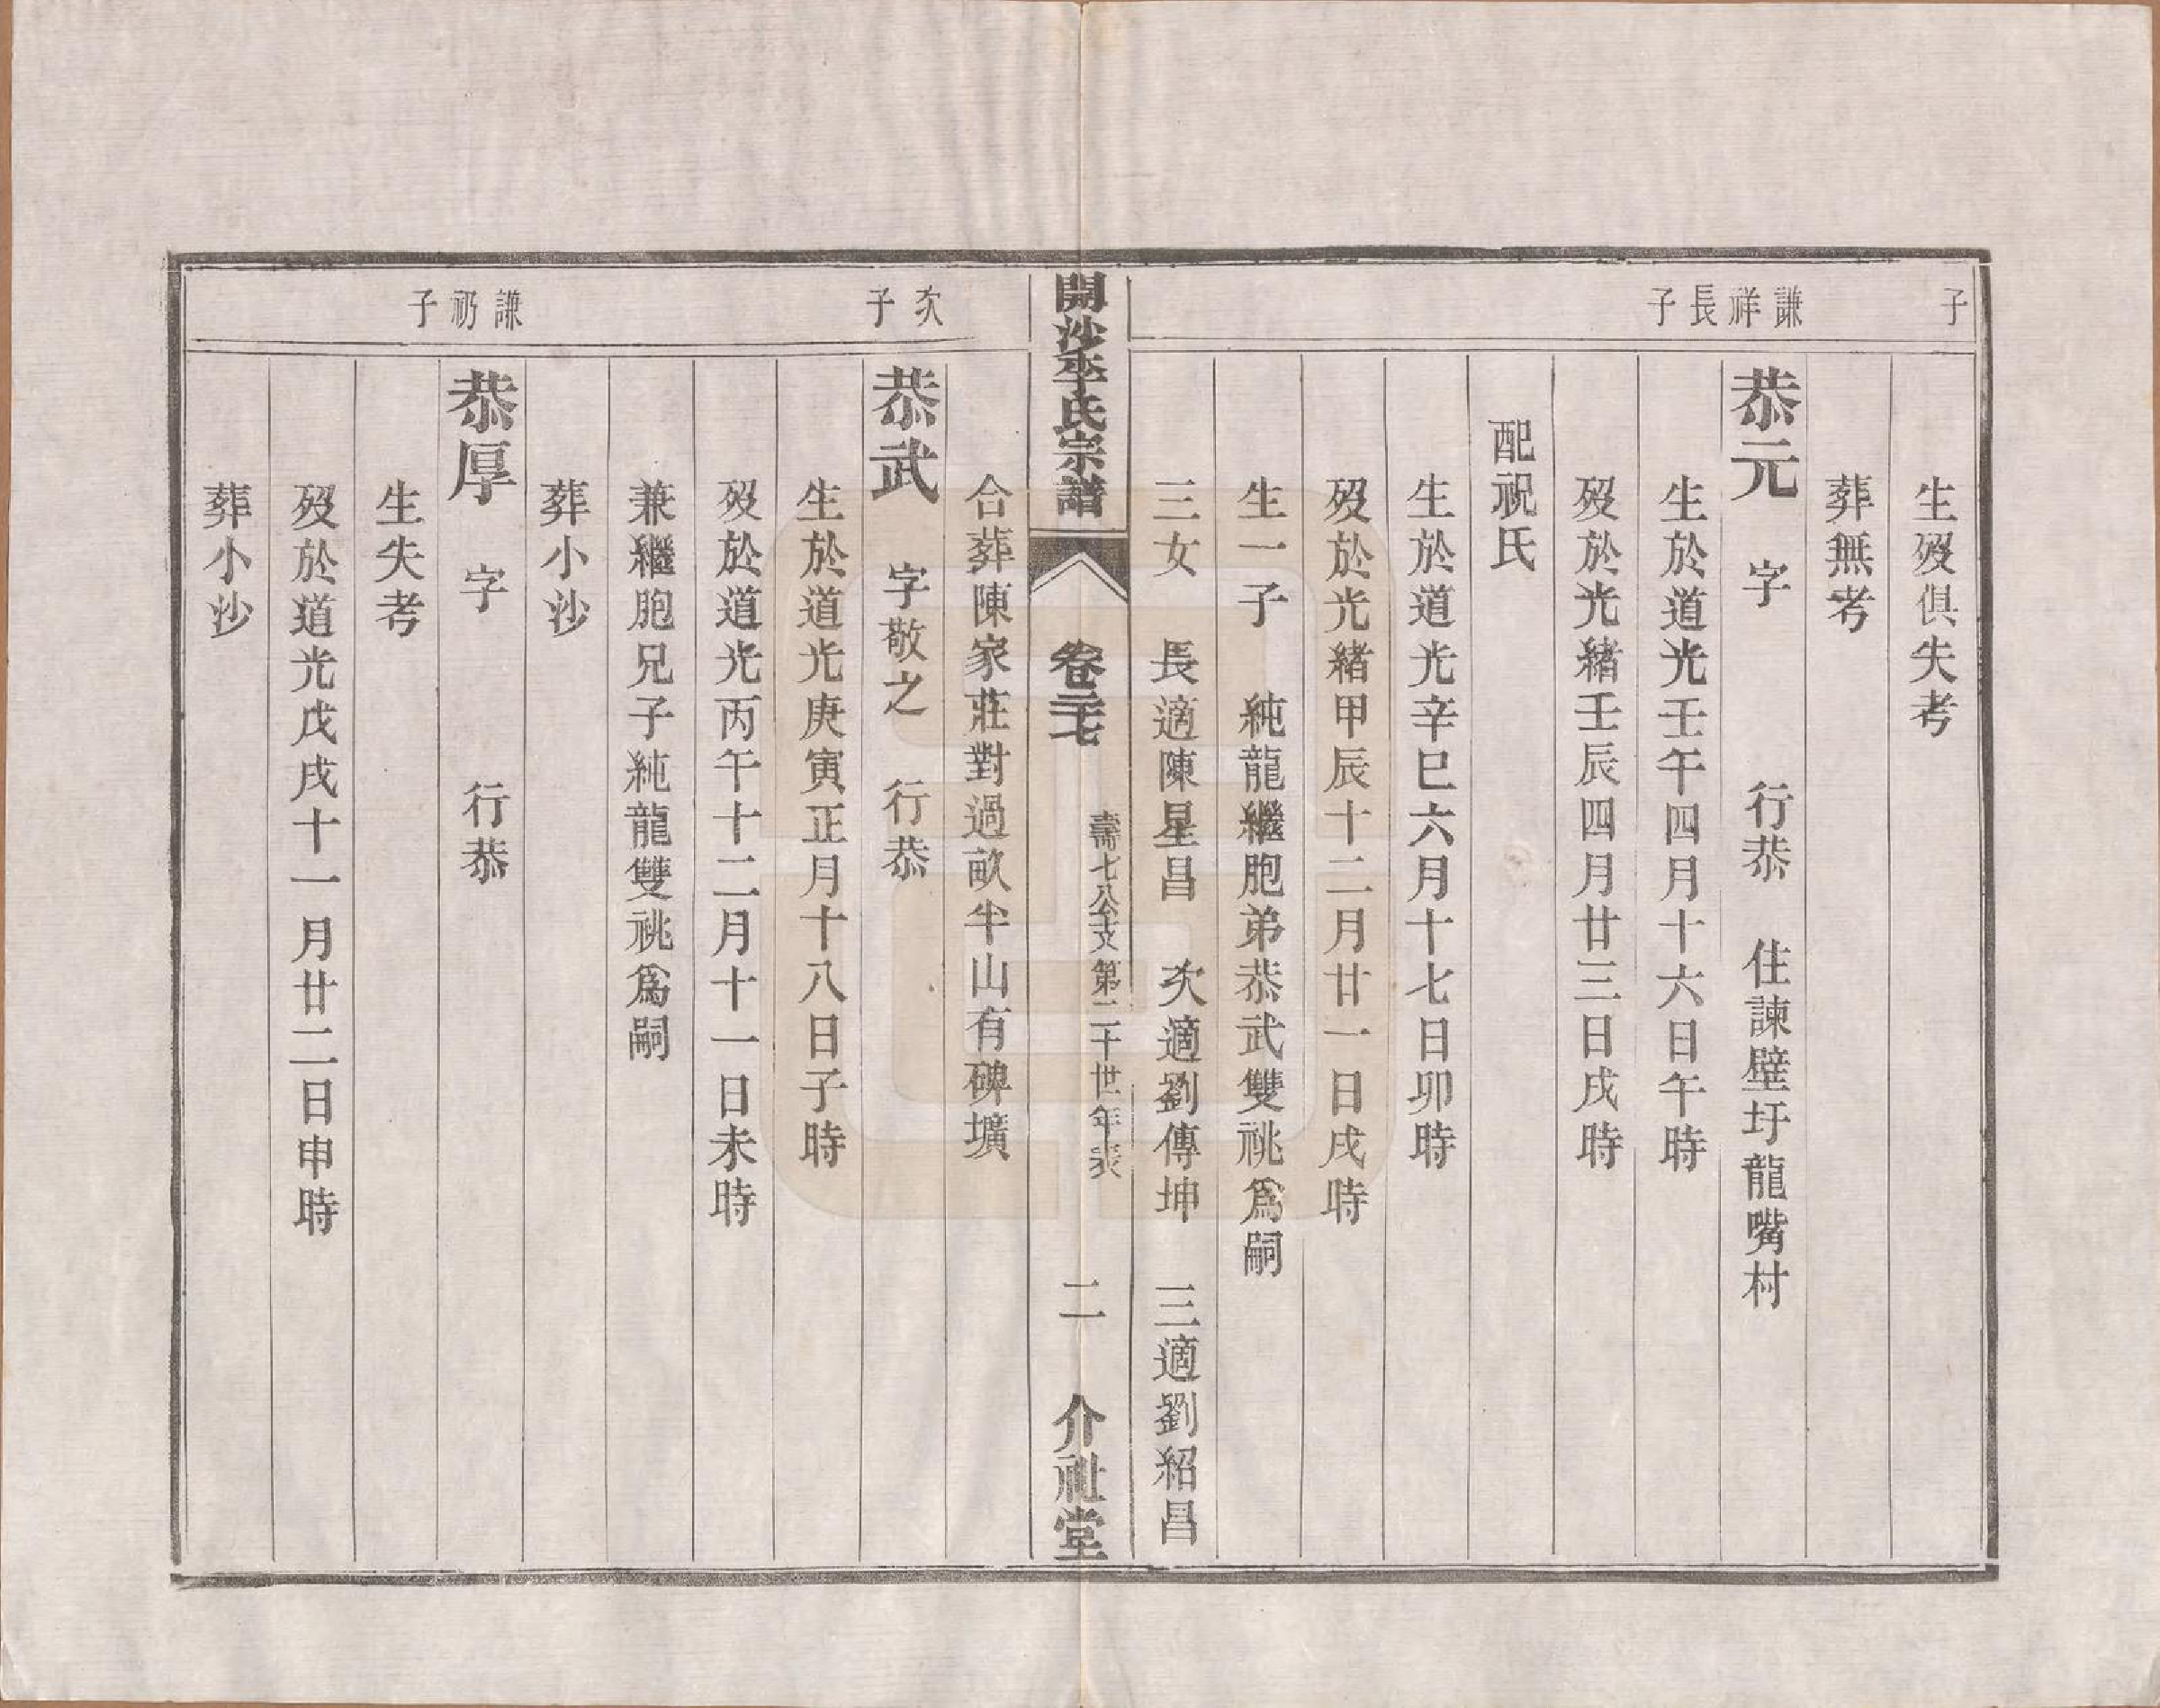 子
生歿俱失考
葬無考
謙祥長子
恭元　字　行恭　住諫壁圩龍嘴村
生於道光壬午四月十六日午時
歿於光緒壬辰四月廿三日戌時
配祝氏
生於道光辛巳六月十七日卯時
歿於光緒甲辰十二月廿一日戌時
生一子　純龍繼胞弟恭武雙祧爲嗣
三女　長適陳星昌　次適劉傳坤　三適劉紹昌
開沙李氏宗譜　卷二十七　壽七八公支第二十世年表　二　介祉堂
合葬陳家莊對過畝半山有碑壙
次子
恭武　字敬之　行恭
生於道光庚寅正月十八日子時
歿於道光丙午十二月十一日未時
兼繼胞兄子純龍雙祧爲嗣
葬小沙
謙礽子
恭厚　字　行恭
生失考
歿於道光戊戌十一月廿二日申時
葬小沙